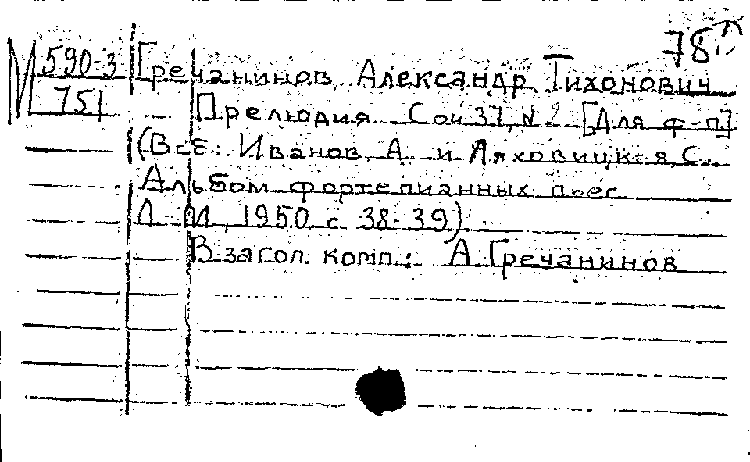 78
М 590-3 Гречанинов, Александр Тихонович
751 Прелюдия Соч 37, №2 [Для ф-п]
(В сб: Иванов, А. и Ляховицкая, С.
Альбом фортепианных пьес
Л-М, 1950 с 38-39)
В загол. комп.: А. Гречанинов